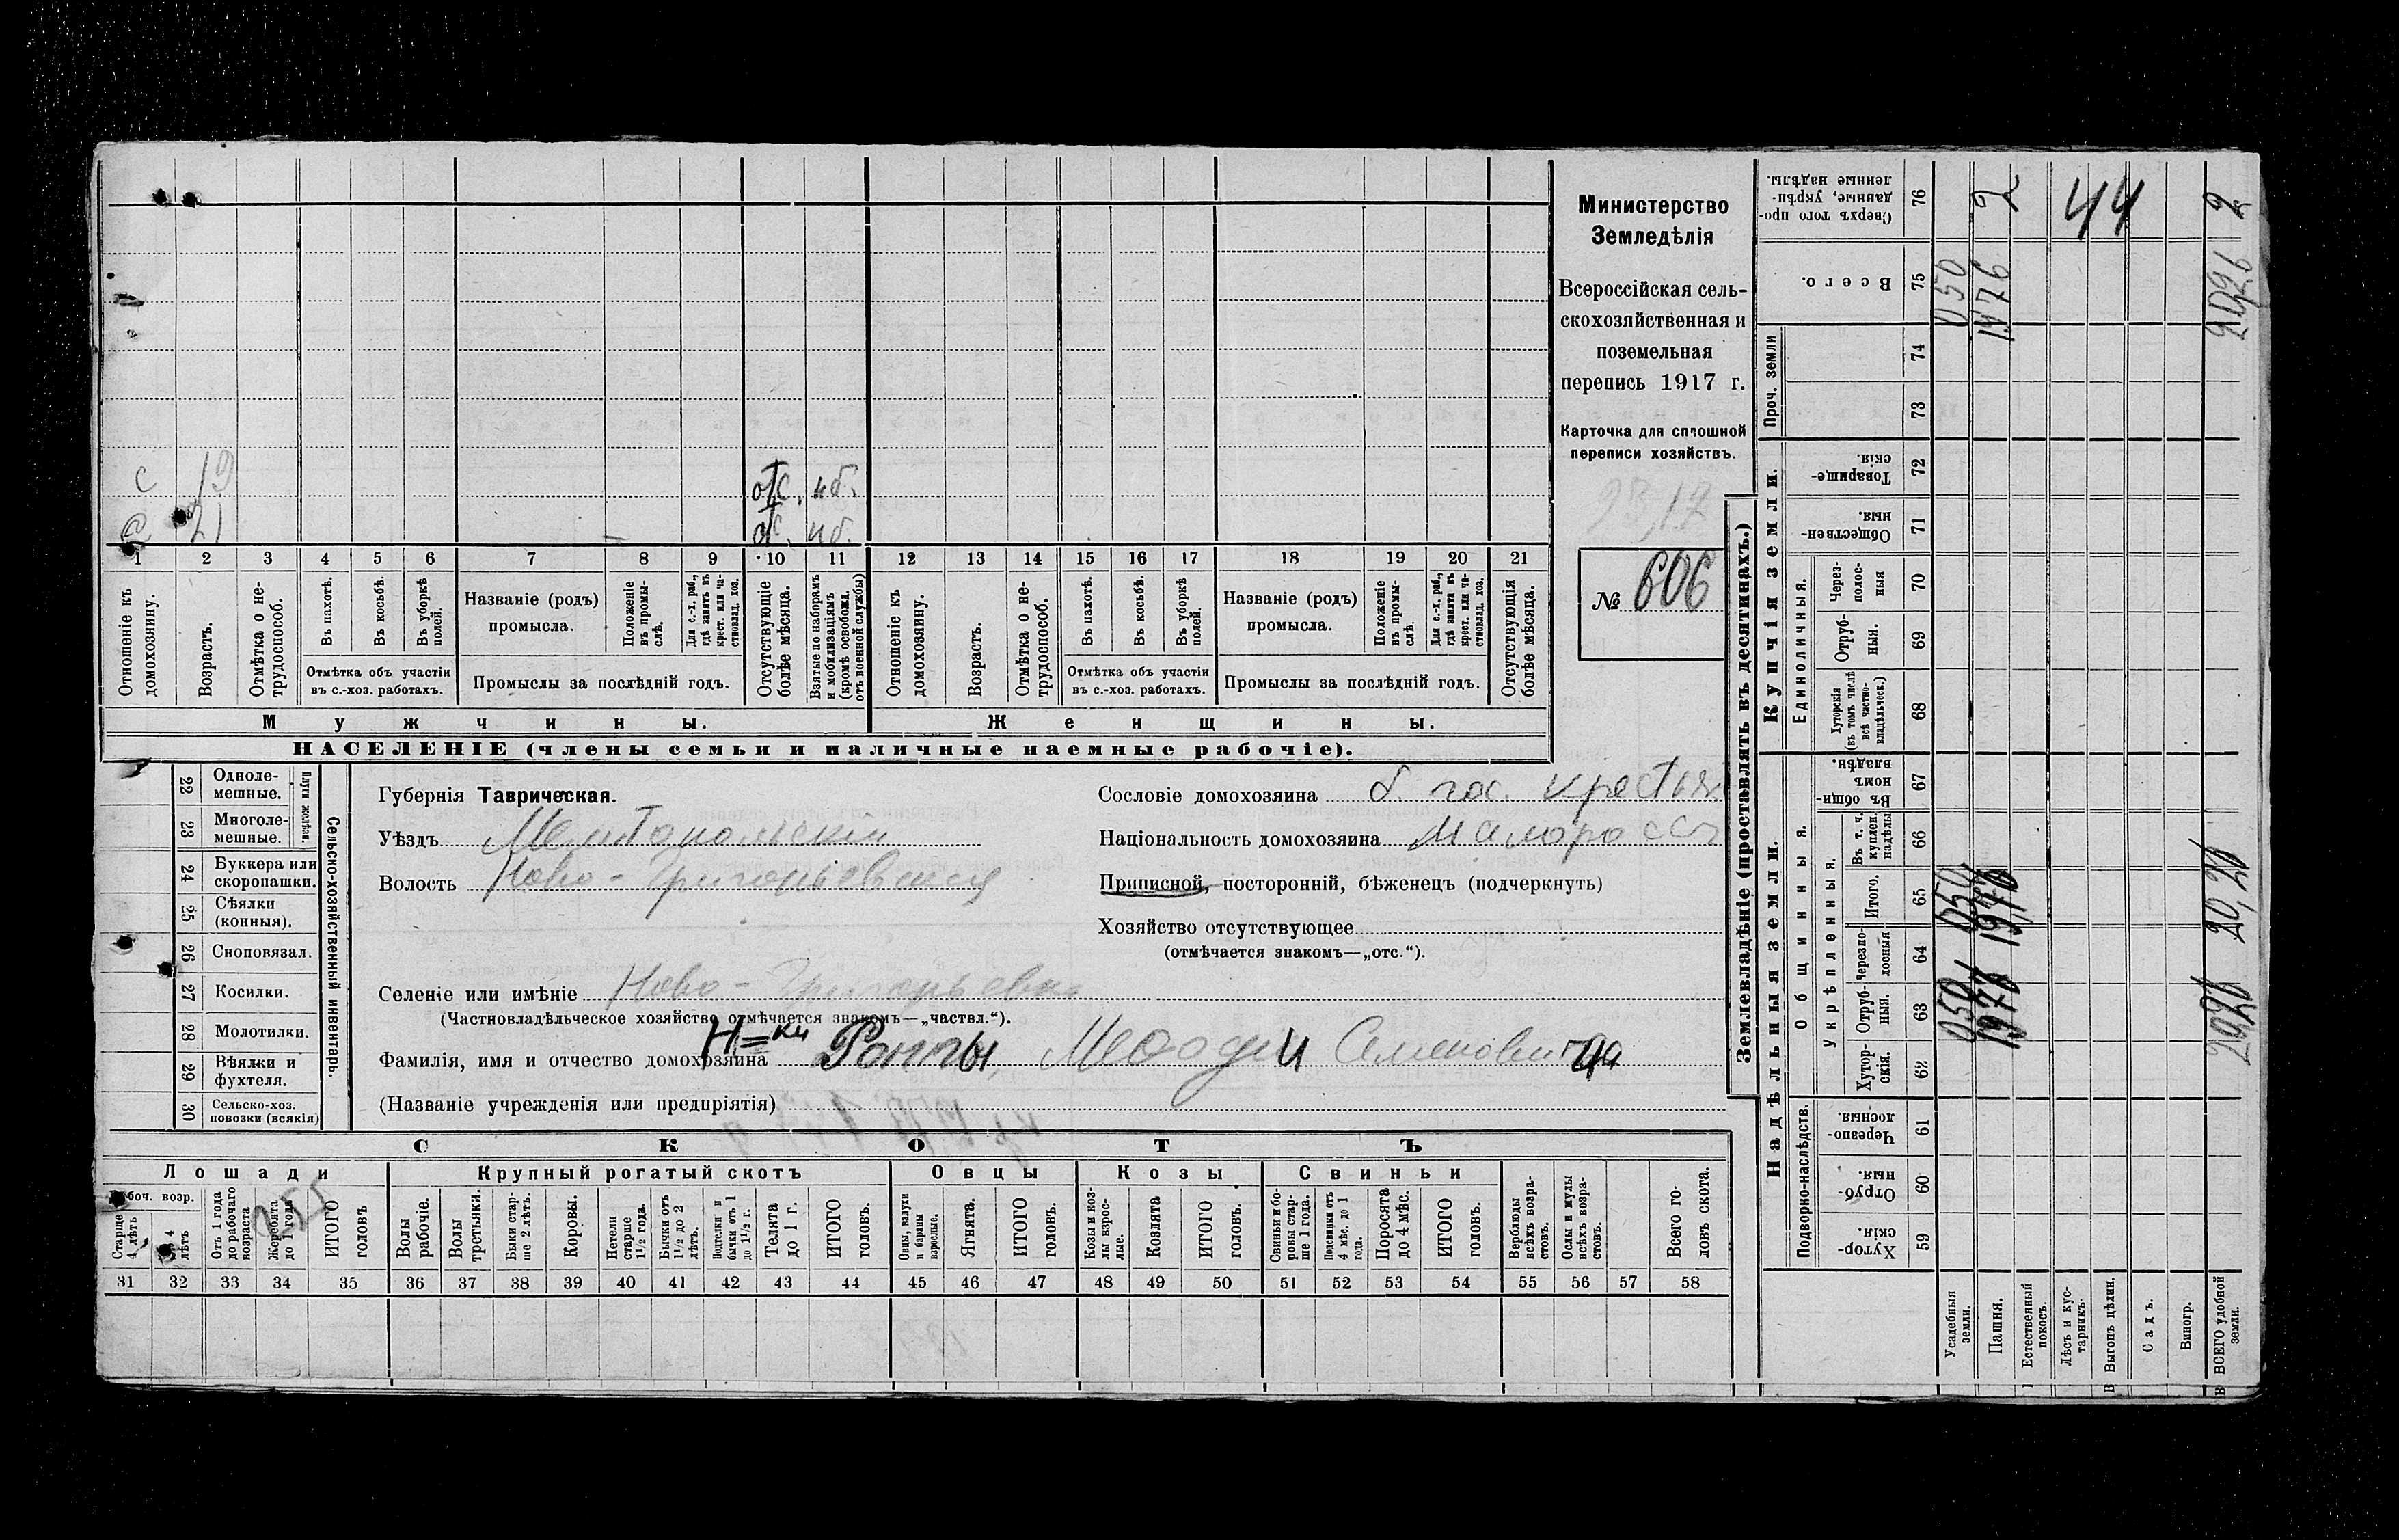 Министерство
Земледѣлія
Всероссійская сель-
скохозяйственная и
поземельная
перепись 1917 г.
Карточка для сплошной
переписи хозяйствъ.
№ 606
с 19 отс. нб.
с 21 отс. нб.
1 2 3 4 5 6 7 8 9 10 11 12 13 14 15 16 17 18 19 20 21
Отношеніе къ домохозяину.
Возрастъ.
Отмѣтка о не-трудоспособ.
Въ пахотѣ.
Въ косьбѣ.
Въ уборкѣ полей.
Отмѣтка объ участіи
въ с.-хоз. работахъ.
Названіе (родъ)
промысла.
Положеніе въ промы-слѣ.
Для с.-х. раб., гдѣ занятъ въ крест. или ча-стновлад. хоз.
Промыслы за послѣдній годъ.
Отсутствующіе болѣе мѣсяца.
Взятые по наборамъ и мобилизаціямъ (кромѣ освобожд. отъ военной службы)
Отношеніе къ домохозяину.
Возрастъ.
Отмѣтка о не-трудоспособ.
Въ пахотѣ.
Въ косьбѣ.
Въ уборкѣ полей.
Отмѣтка объ участіи
въ с.-хоз. работахъ.
Названіе (родъ)
промысла.
Положеніе въ промы-слѣ.
Для с.-х. раб., гдѣ занята въ крест. или ча-стновлад. хоз.
Промыслы за послѣдній годъ.
Отсутствующія болѣе мѣсяца.
Мужчины.
Женщины.
НАСЕЛЕНІЕ (члены семьи и наличные наемные рабочіе).
Сельско-хозяйственный инвентарь.
Плуги желѣзн.
22 Одноле-мешные.
23 Многоле-мешные.
24 Буккера или скоропашки.
25 Сѣялки (конныя).
26 Сноповязал.
27 Косилки.
28 Молотилки.
29 Вѣялки и фухтеля.
30 Сельско-хоз. повозки (всякія)
Губернія Таврическая.
Уѣздъ Мелитопольскій
Волость Ново-Григорьевская
Сословіе домохозяина б. гос. крестьян.
Національность домохозяина Малоросс
Приписной, посторонній, бѣженецъ (подчеркнуть)
Хозяйство отсутствующее
(отмѣчается знакомъ—„отс.“).
Селеніе или имѣніе Ново-Григорьевка
(Частновладѣльческое хозяйство отмѣчается знакомъ—„частвл.“).
Фамилія, имя и отчество домохозяина Н=ки Роппы, Меѳодiи Семеновича
(Названіе учрежденія или предпріятія)
СКОТЪ
Лошади
Крупный рогатый скотъ
Овцы
Козы
Свиньи
Рабоч. возр.
Старше 4 лѣтъ
До 4 лѣтъ
Отъ 1 года до рабочаго возраста
Жеребята до 1 года
ИТОГО головъ
Волы рабочіе.
Волы третьяки.
Быки стар-ше 2 лѣтъ.
Коровы.
Нетели старше 1½ года.
Бычки отъ 1½ до 2 лѣтъ.
Подтелки и бычки отъ 1 до 1½ г.
Телята до 1 г.
ИТОГО головъ.
Овцы, валухи и бараны взрослые.
Ягнята.
ИТОГО головъ.
Козы и коз-лы взрос-лые.
Козлята
ИТОГО головъ.
Свиньи и бо-ровы стар-ше 1 года.
Подсвинки отъ 4 мѣс. до 1 года.
Поросята до 4 мѣс.
ИТОГО головъ.
Верблюды всѣхъ возра-стовъ.
Ослы и мулы всѣхъ возра-стовъ.
Всего го-ловъ скота.
31 32 33 34 35 36 37 38 39 40 41 42 43 44 45 46 47 48 49 50 51 52 53 54 55 56 57 58
Землевладѣніе (проставлять въ десятинахъ.)
Надѣльныя земли.
Купчія земли.
Проч. земли
Подворно-наслѣдств.
Общинныя.
Укрѣпленныя.
Единоличныя.
Сверхъ того про-данные, укрѣп-ленные надѣлы. 76 2 44 2
Всего. 75 050 1976 2026
74
73
Товарище-скія. 72
Обществен-ныя. 71
Через-полос-ныя 70
Отруб-ныя. 69
Хуторскія (въ томъ числѣ всѣ частно-владѣльческ.) 68
Въ общин-номъ владѣн. 67
Въ т. ч. куплен. надѣлы 66
Итого. 65 050 1976 20,26
Черезпо-лосныя 64
Отруб-ныя. 63 050 1976 2026
Хутор-скія. 62
Черезпо-лосныя 61
Отруб-ныя. 60
Хутор-скія 59
Усадебныя земли.
Пашня.
Естественный покосъ.
Лѣсъ и кус-тарникъ.
Выгонъ цѣлин.
Садъ.
Виногр.
ВСЕГО удобной земли.